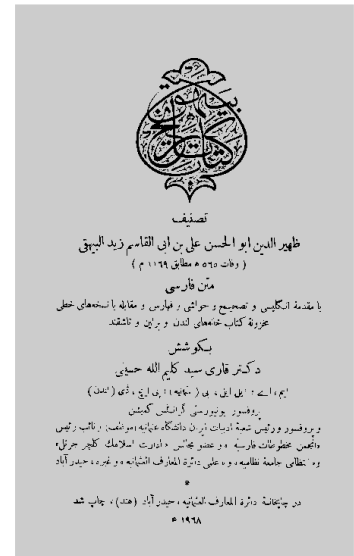 کتاب تاریخ بیهق
تصنیف
ظهیر الدین ابو الحسن علی بن ابی القاسم زید البیهقی
( وفات ۵۶۵ ھ مطابق ۱۱۶۹ م )
متن فارسی
با مقدمهٔ انگلیسی و تصحیح و حواشی و فهارس و مقابله با نسخه‌های خطی
مخزونهٔ کتاب خانه‌های لندن و برلین و تاشقند
بکوشش
دکتر قاری سید کلیم الله حسینی
ایم ، اے ؛ ایل ایل ، بی ( عثمانیه ) ؛ پی ایچ ، ڈی ( لندن )
پروفسور یونیورستی گرانتس کمیشن
و پروفسور و رئیس شعبهٔ ادبیات ایران دانشگاه عثمانیه (موظف) و نائب رئیس
«انجمن مخطوطات فارسیه» و عضو مجالس «ادارت اسلامک کلچر جرنل»
و «انتظامی جامعهٔ نظامیه» و «علمی دائرة المعارف العثمانیه» و غیره ، حیدر آباد
*
در چاپخانهٔ دائرة المعارف العثمانیه ، حیدر آباد (هند) ، چاپ شد
۱۹۶۸ ء